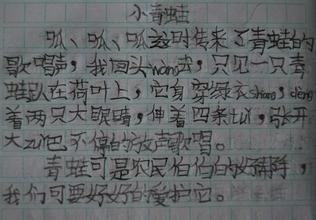 小青蛙
呱、呱、呱这时传来了青蛙的
歌唱声，我回头wàng去，只见一只青
蛙趴在荷叶上，它身穿绿衣shang，dèng
着两只大眼睛，伸着四条tuǐ，张开
大zuǐ巴不停的放声歌唱。
青蛙可是农民伯伯的好
我们可要好好的爱护它。